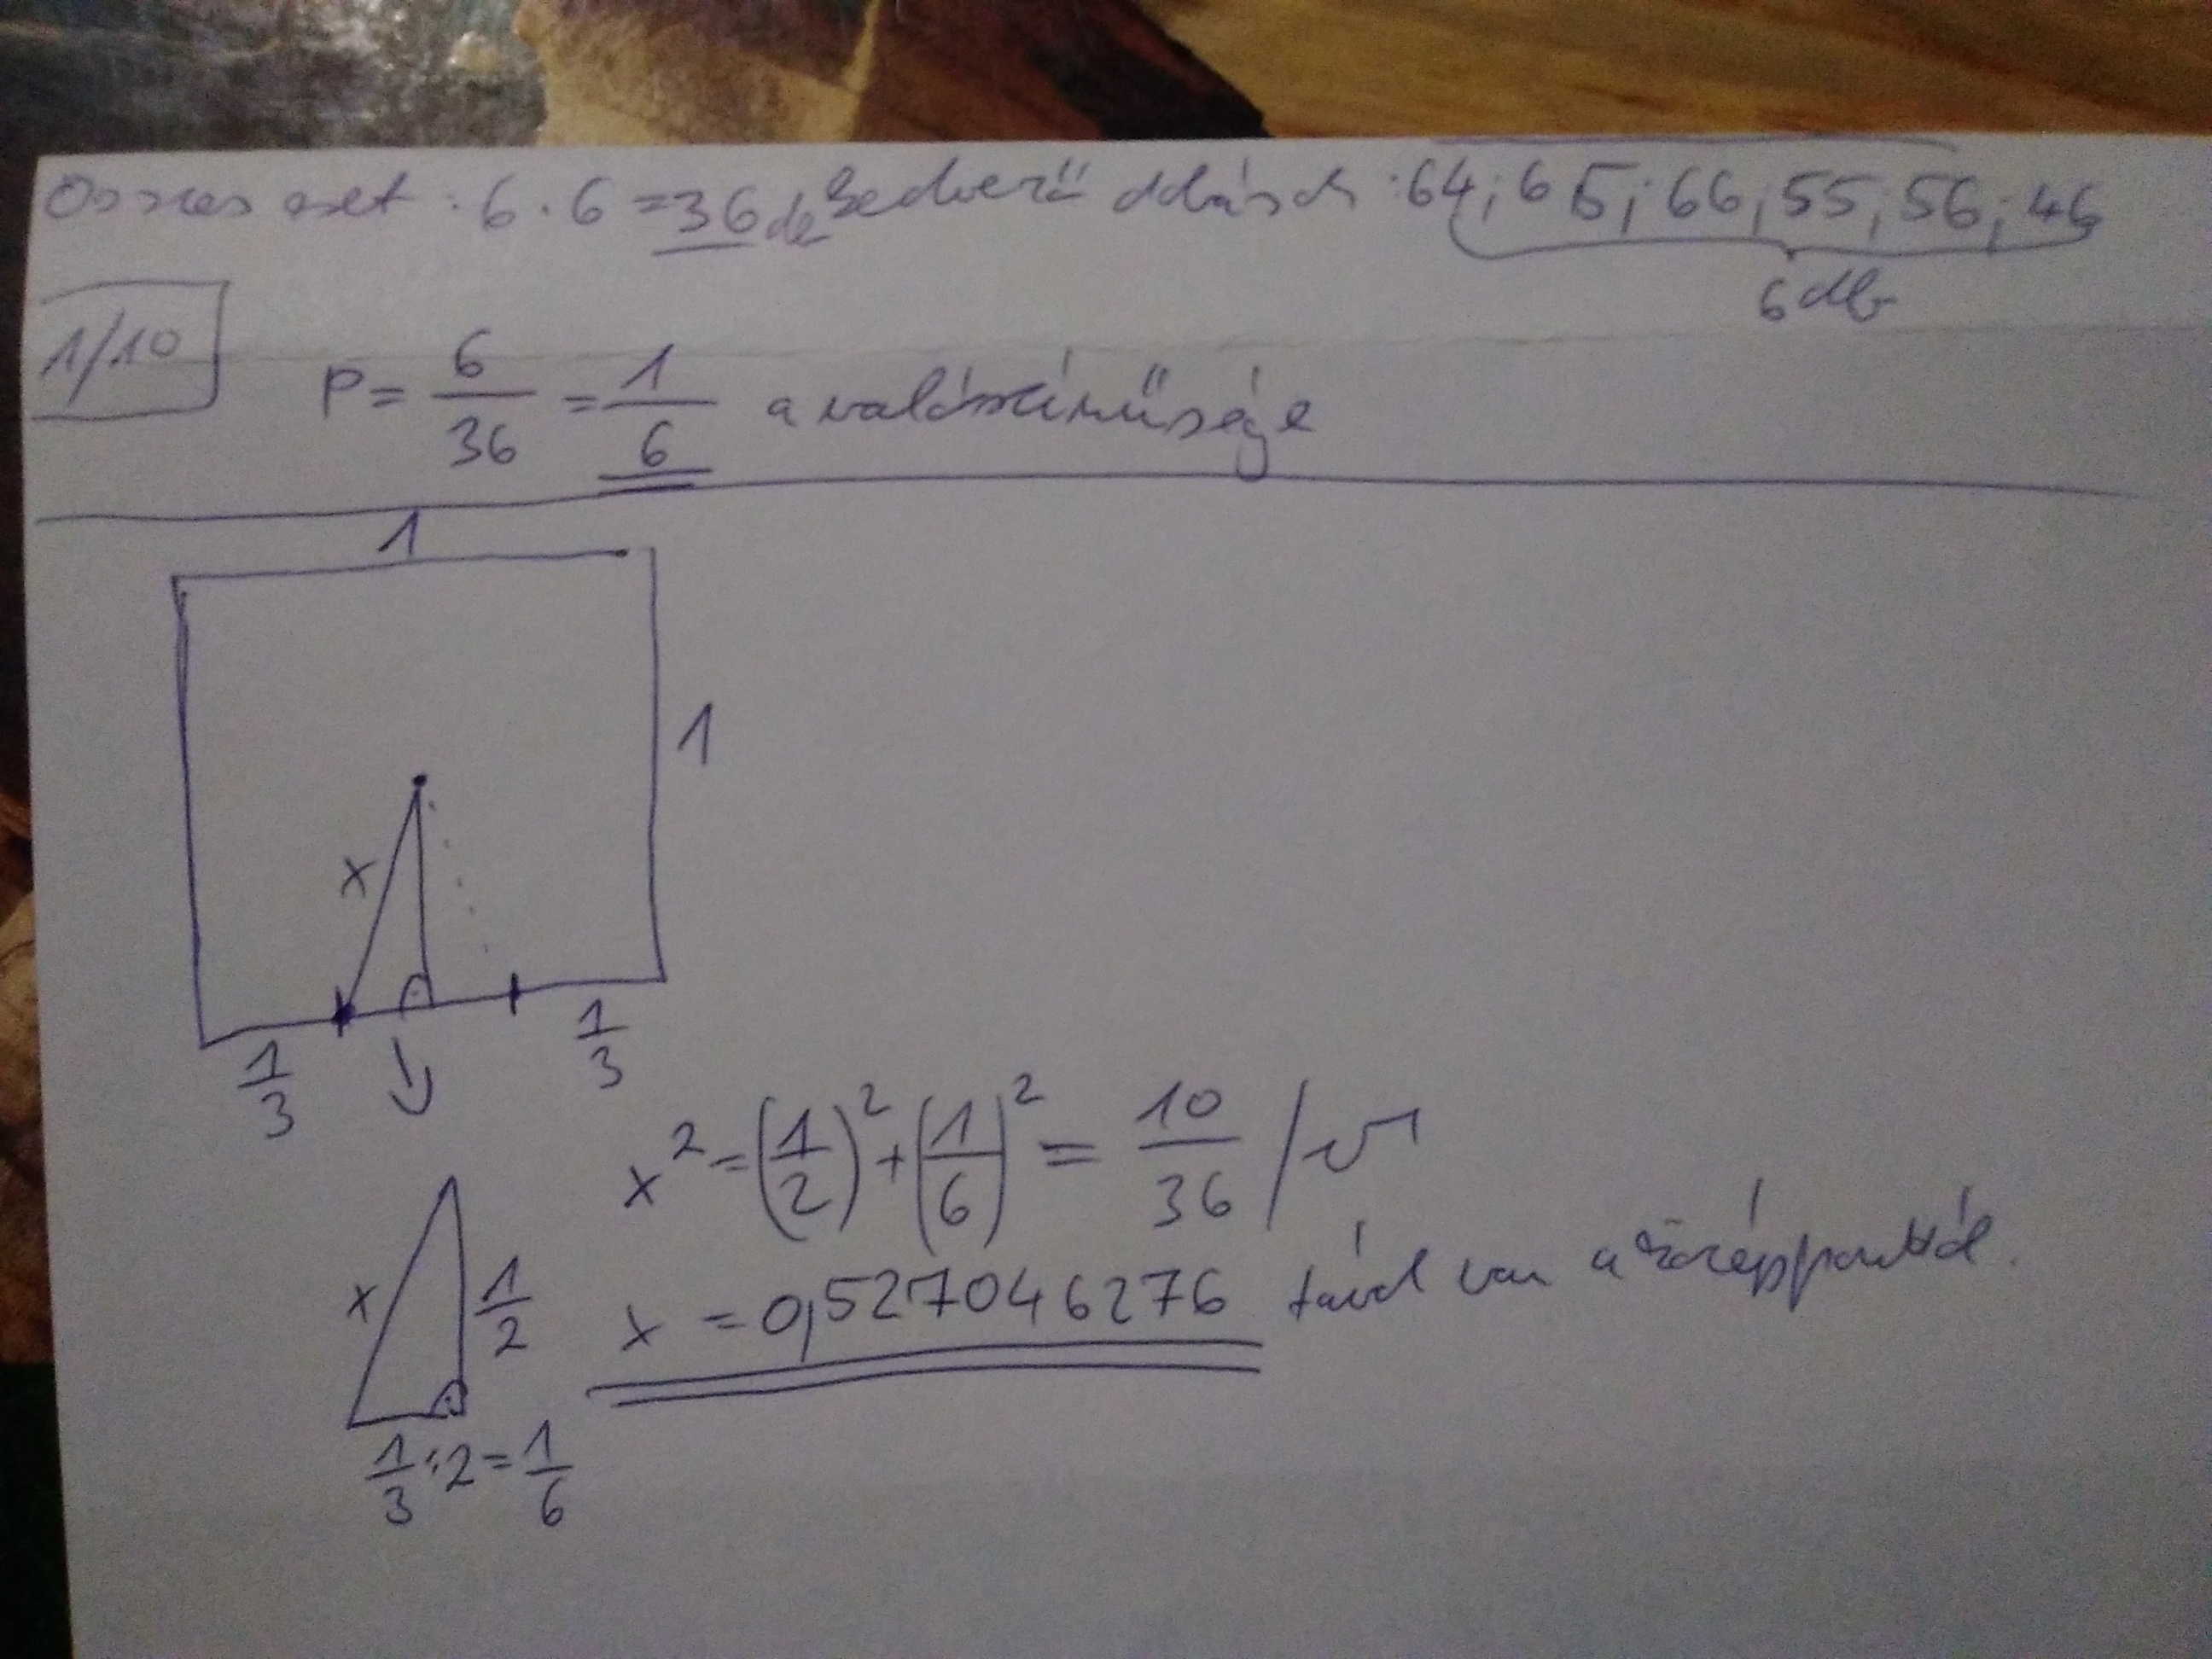 Összes eset : 6 · 6 = 36 de kedvező dobások : 64; 65; 66; 55; 56; 46
6 db
1/10
P = 6/36 = 1/6 a valószínűsége
1
1
x
1/3
1/3
x² = (1/2)² + (1/6)² = 10/36 /√
x
1/2
x = 0,527046276 távol van a középponttól.
1/3 : 2 = 1/6